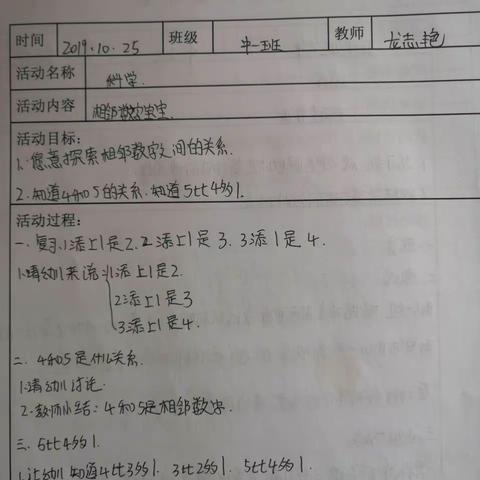 时间 2019.10.25 班级 中一班 教师 龙志艳
活动名称 科学.
活动内容 相邻数宝宝.
活动目标:
1.愿意探索相邻数字之间的关系.
2.知道4和5的关系.知道5比4多1.
活动过程:
一.复习.1添上1是2.2添上1是3.3添1是4.
1.请幼儿来说:1添上1是2.
2添上1是3
3添上1是4.
二.4和5是什么关系.
1.请幼儿讨论.
2.教师小结:4和5是相邻数字.
三.5比4多1.
1.让幼儿知道4比3多1.3比2多1.5比4多1.